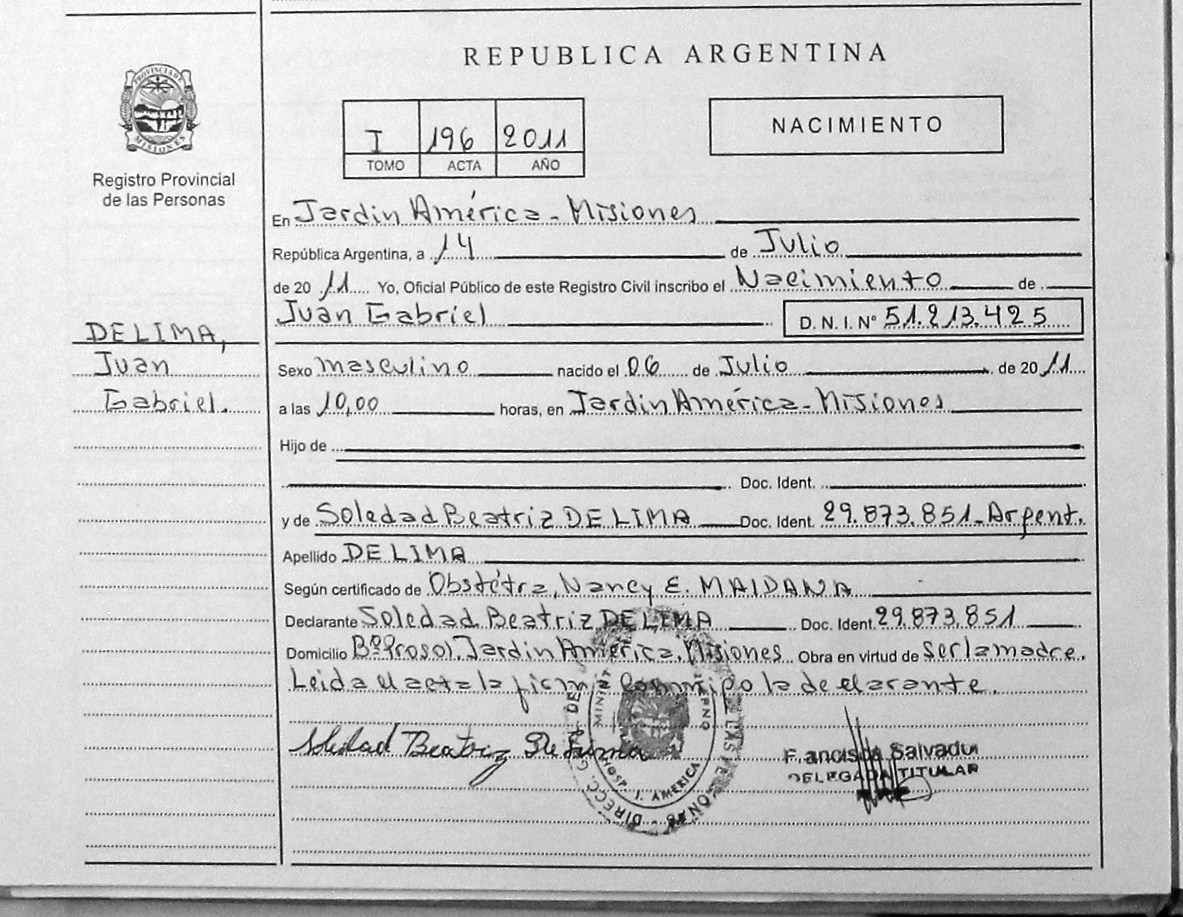 REPUBLICA ARGENTINA
PROVINCIA DE MISIONES
Registro Provincial
de las Personas
I 196 2011
TOMO ACTA AÑO
NACIMIENTO
En Jardin América - Misiones
República Argentina, a 14 de Julio
de 20 11 Yo, Oficial Público de este Registro Civil inscribo el Nacimiento de
Juan Gabriel D. N. I. Nº 51.213.425
DE LIMA,
Juan
Gabriel.
Sexo masculino nacido el 06 de Julio de 20 11
a las 10,00 horas, en Jardin América - Misiones
Hijo de
Doc. Ident.
y de Soledad Beatriz DE LIMA Doc. Ident. 29.873.851 - Argent.
Apellido DE LIMA
Según certificado de Obstétra, Nancy E. MAIDANA
Declarante Soledad Beatriz DE LIMA Doc. Ident. 29.873.851
Domicilio Bº Prosol. Jardin América, Misiones Obra en virtud de ser la madre.
Leida el acta la firma conmigo la declarante.
Soledad Beatriz De Lima
HOSP. J. AMERICA
Francisca Salvador
DELEGADA TITULAR